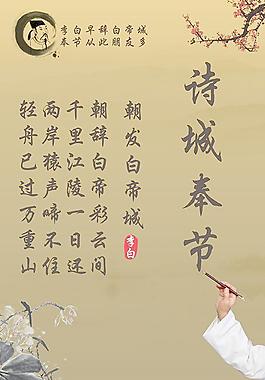 李白早辞白帝城
奉节从此朋友多
诗城奉节
朝发白帝城
李白
朝辞白帝彩云间
千里江陵一日还
两岸猿声啼不住
轻舟已过万重山